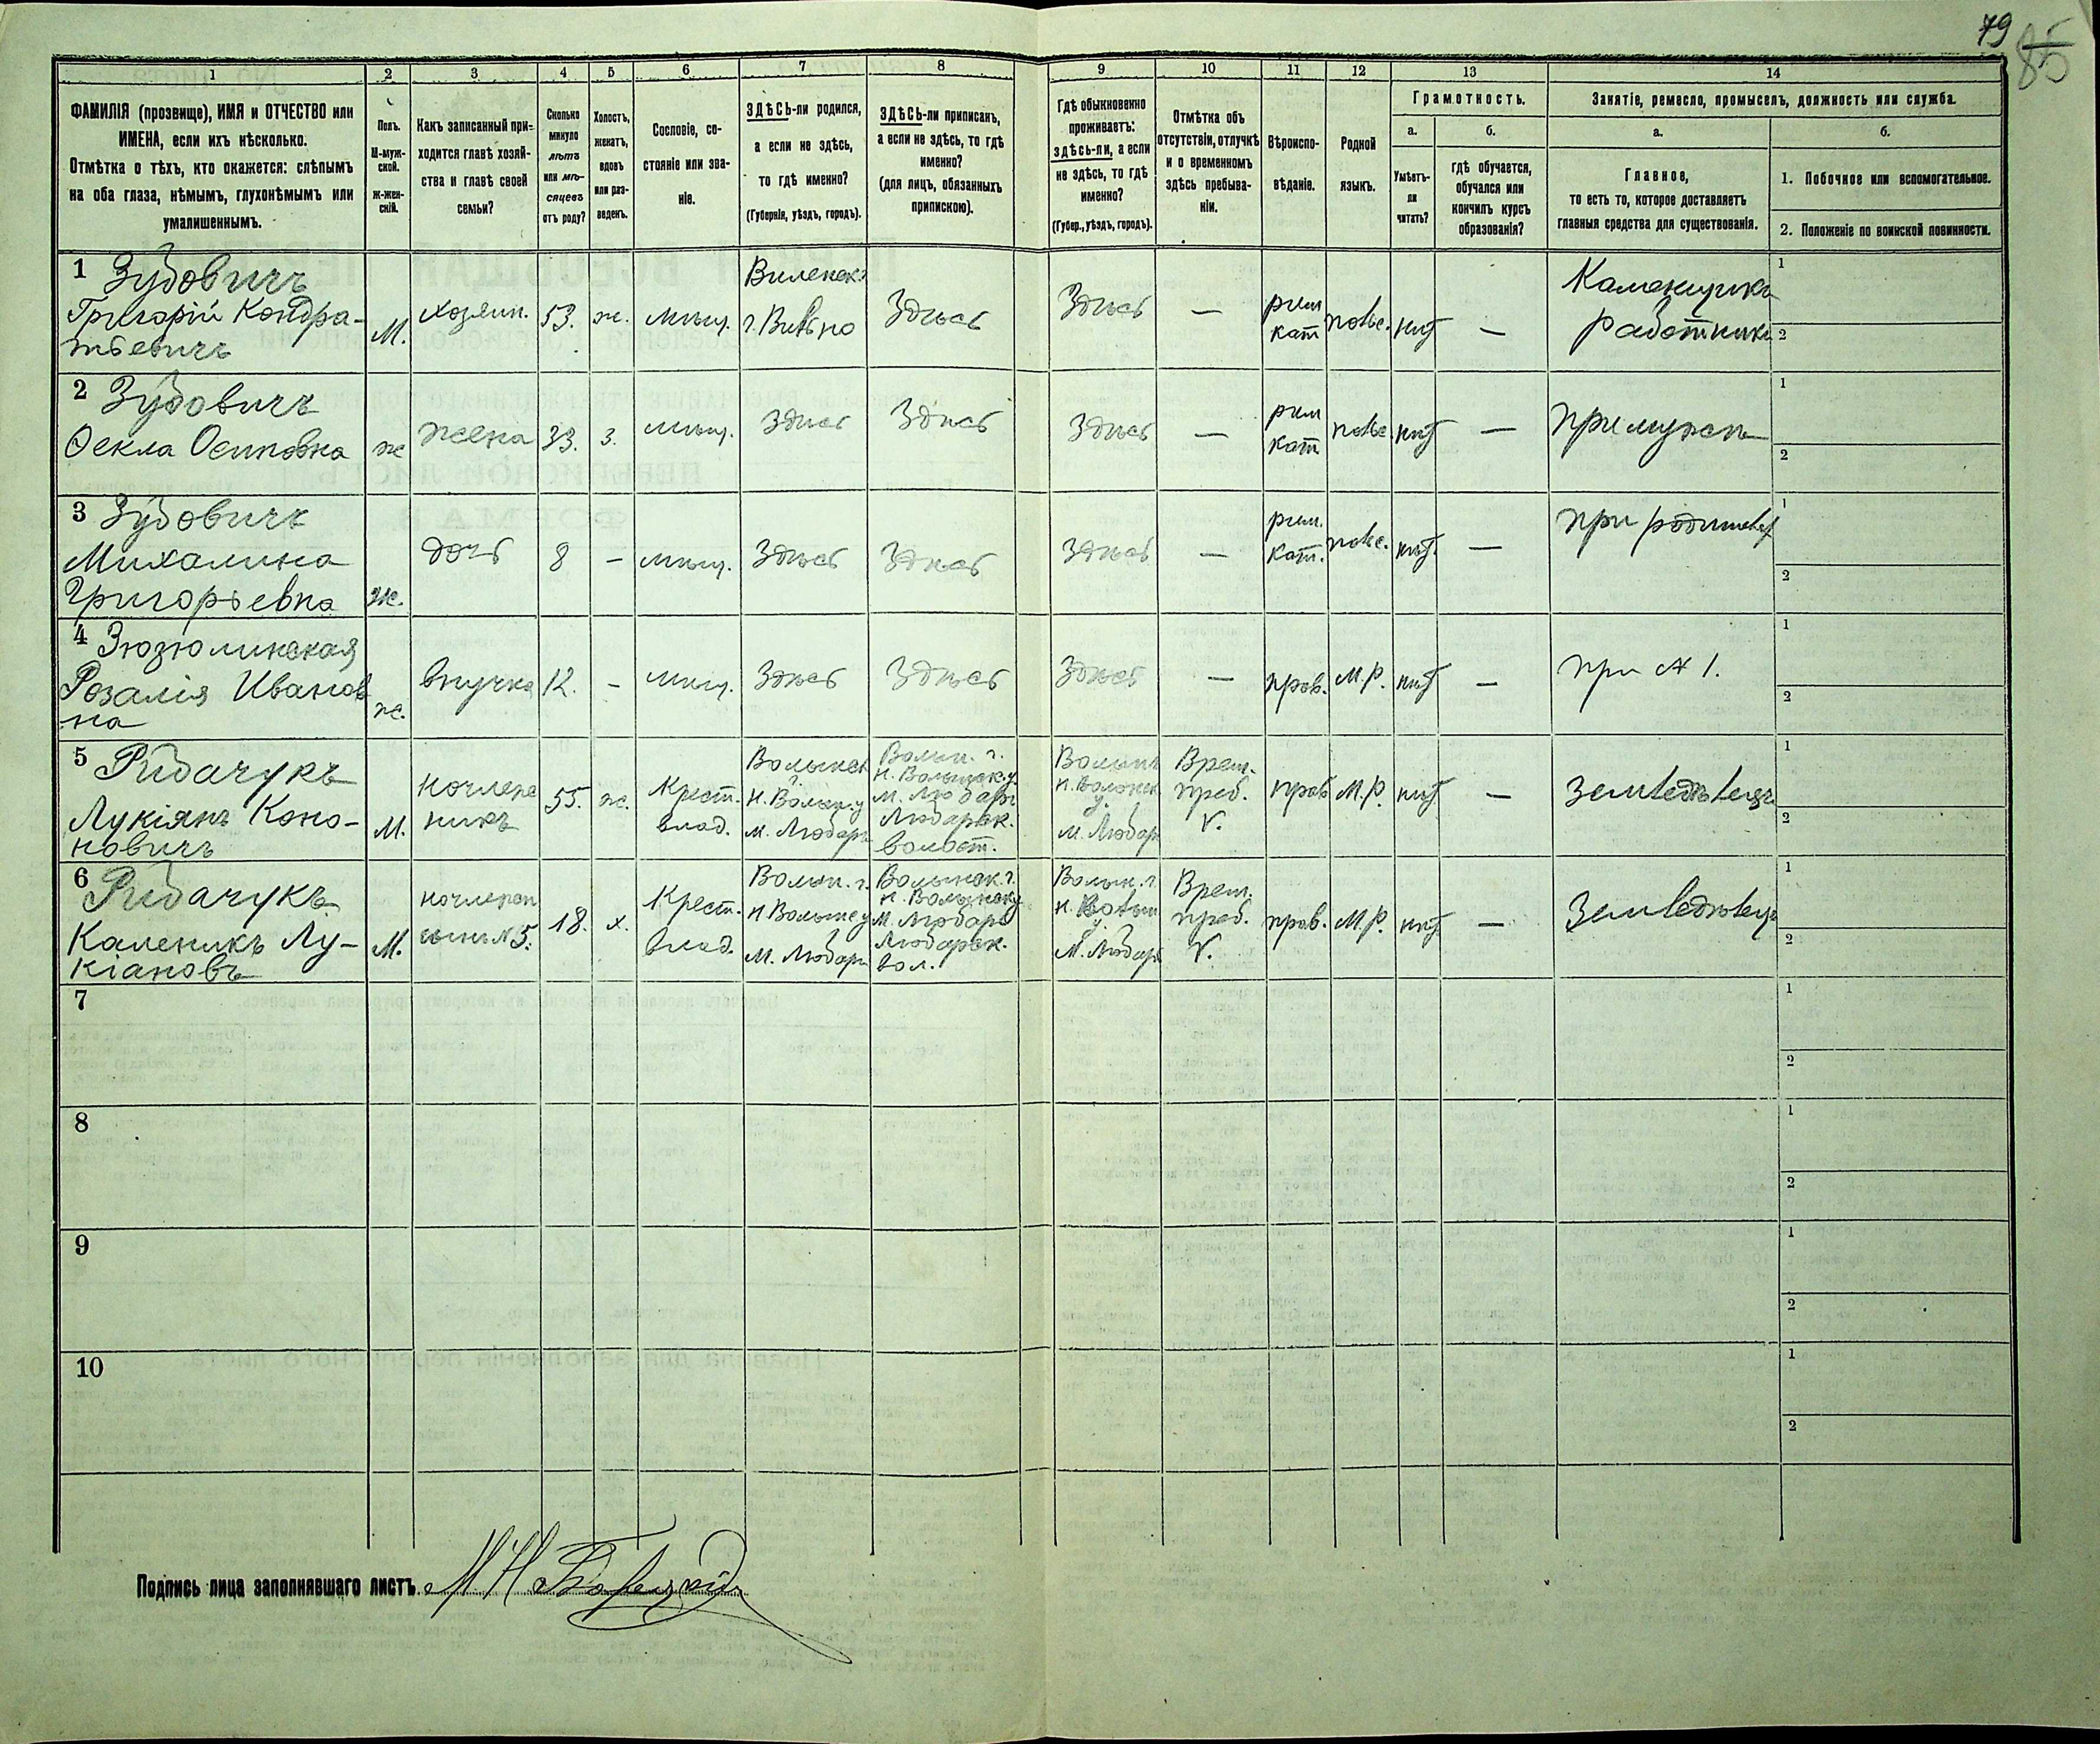 79
85
1 2 3 4 5 6 7 8 9 10 11 12 13 14
ФАМИЛІЯ (прозвище), ИМЯ и ОТЧЕСТВО или
ИМЕНА, если ихъ нѣсколько.
Отмѣтка о тѣхъ, кто окажется: слѣпымъ
на оба глаза, нѣмымъ, глухонѣмымъ или
умалишеннымъ.
Полъ.
М-муж-
ской.
Ж-жен-
скій.
Какъ записанный при-
ходится главѣ хозяй-
ства и главѣ своей
семьи?
Сколько
минуло
лѣтъ
или мѣ-
сяцевъ
отъ роду?
Холостъ,
женатъ,
вдовъ
или раз-
веденъ.
Сословіе, со-
стояніе или зва-
ніе.
ЗДѢСЬ-ли родился,
а если не здѣсь,
то гдѣ именно?
(Губернія, уѣздъ, городъ).
ЗДѢСЬ-ли приписанъ,
а если не здѣсь, то гдѣ
именно?
(для лицъ, обязанныхъ
припискою).
Гдѣ обыкновенно
проживаетъ:
здѣсь-ли, а если
не здѣсь, то гдѣ
именно?
(Губер., уѣздъ, городъ).
Отмѣтка объ
отсутствіи, отлучкѣ
и о временномъ
здѣсь пребыва-
ніи.
Вѣроиспо-
вѣданіе.
Родной
языкъ.
Грамотность.
а.
б.
Умѣетъ-
ли
читать?
гдѣ обучается,
обучался или
кончилъ курсъ
образованія?
Занятіе, ремесло, промыселъ, должность или служба.
а.
б.
Главное,
то есть то, которое доставляетъ
главныя средства для существованія.
1. Побочное или вспомогательное.
2. Положеніе по воинской повинности.
1 Зубовичъ
Григорій Кондра-
тьевичъ
М.
хозяин.
53.
ж.
мѣщ.
Виленск.
г. Вильно
Здѣсь
Здѣсь
—
рим
кат
польс.
нѣт
—
Каменщикъ
работникъ
1
2
2 Зубовичъ
Ѳекла Осиповна
ж
жена
33.
з.
мѣщ.
Здѣсь
Здѣсь
Здѣсь
—
рим
кат
польс.
нѣт
—
при мужѣ
1
2
3 Зубовичъ
Михалина
Григорьевна
ж.
дочь
8
—
мѣщ.
Здѣсь
Здѣсь
Здѣсь
—
рим.
кат.
польс.
нѣт.
—
при родителях
1
2
4 Зюзюлинская
Розалія Иванов
-на
ж.
внучка
12.
—
мѣщ.
Здѣсь
Здѣсь
Здѣсь
—
прав.
М.Р.
нѣт
—
при № 1.
1
2
5 Рибачукъ
Лукіянъ Коно-
новичъ
М.
ночлеж
никъ
55.
ж.
Крест.
влад.
Волынск
Н. Волын. у
м. Любаръ
Волын. г.
Н. Волынск. у
м. Любаръ
Любарск.
волост.
Волын
Н. Волынск
у.
м. Любар
Врем.
преб.
V.
прав
М.Р.
нѣт
—
Земледѣлецъ
1
2
6 Рибачукъ
Каленикъ Лу-
кіановъ
М.
сынъ №5.
18.
х.
Крест.
влад.
Волын. г.
Н Волынс у
м. Любаръ
Волынск. г.
Н. Волынск у
м. Любаръ
Любарск.
вол.
Волын. г
Н. Волын
у.
м. Любар
Врем.
преб.
V.
прав.
М.Р.
нѣт
—
Земледѣлецъ
1
2
7
1
2
8
1
2
9
1
2
10
1
2
Подпись лица заполнявшаго листъ